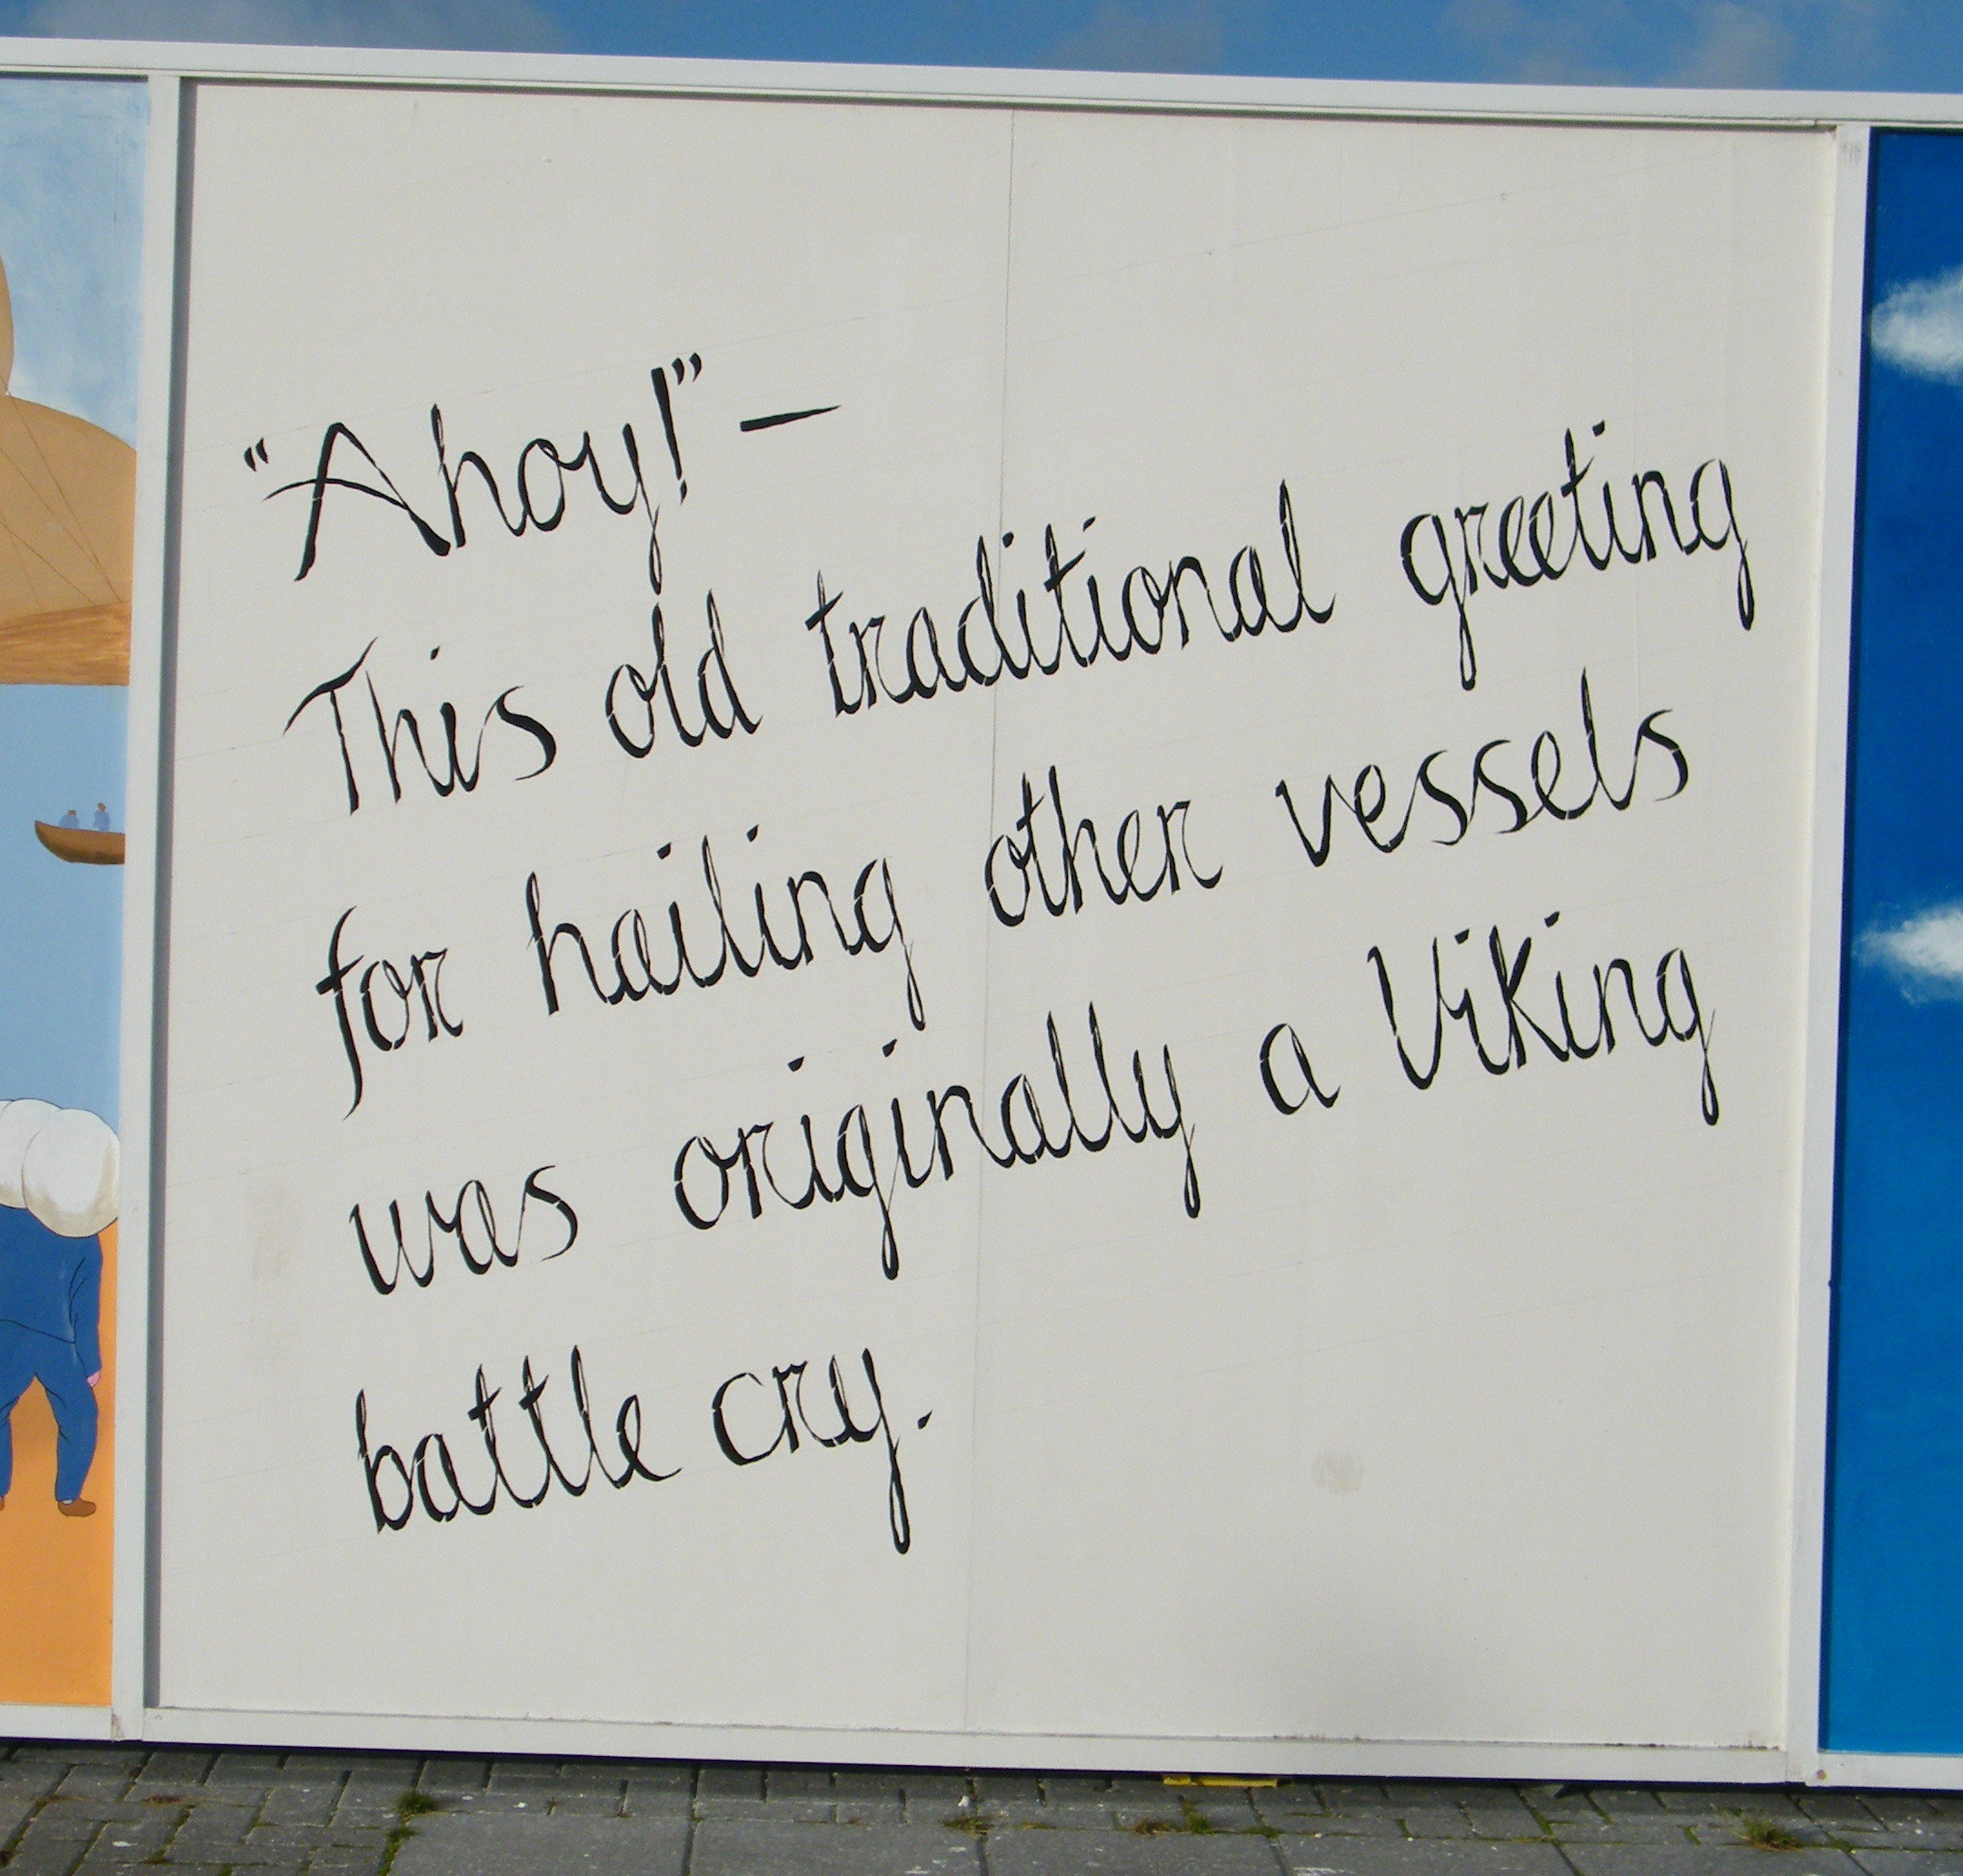 “Ahoy!” —
This old traditional greeting
for hailing other vessels
was originally a Viking
battle cry.